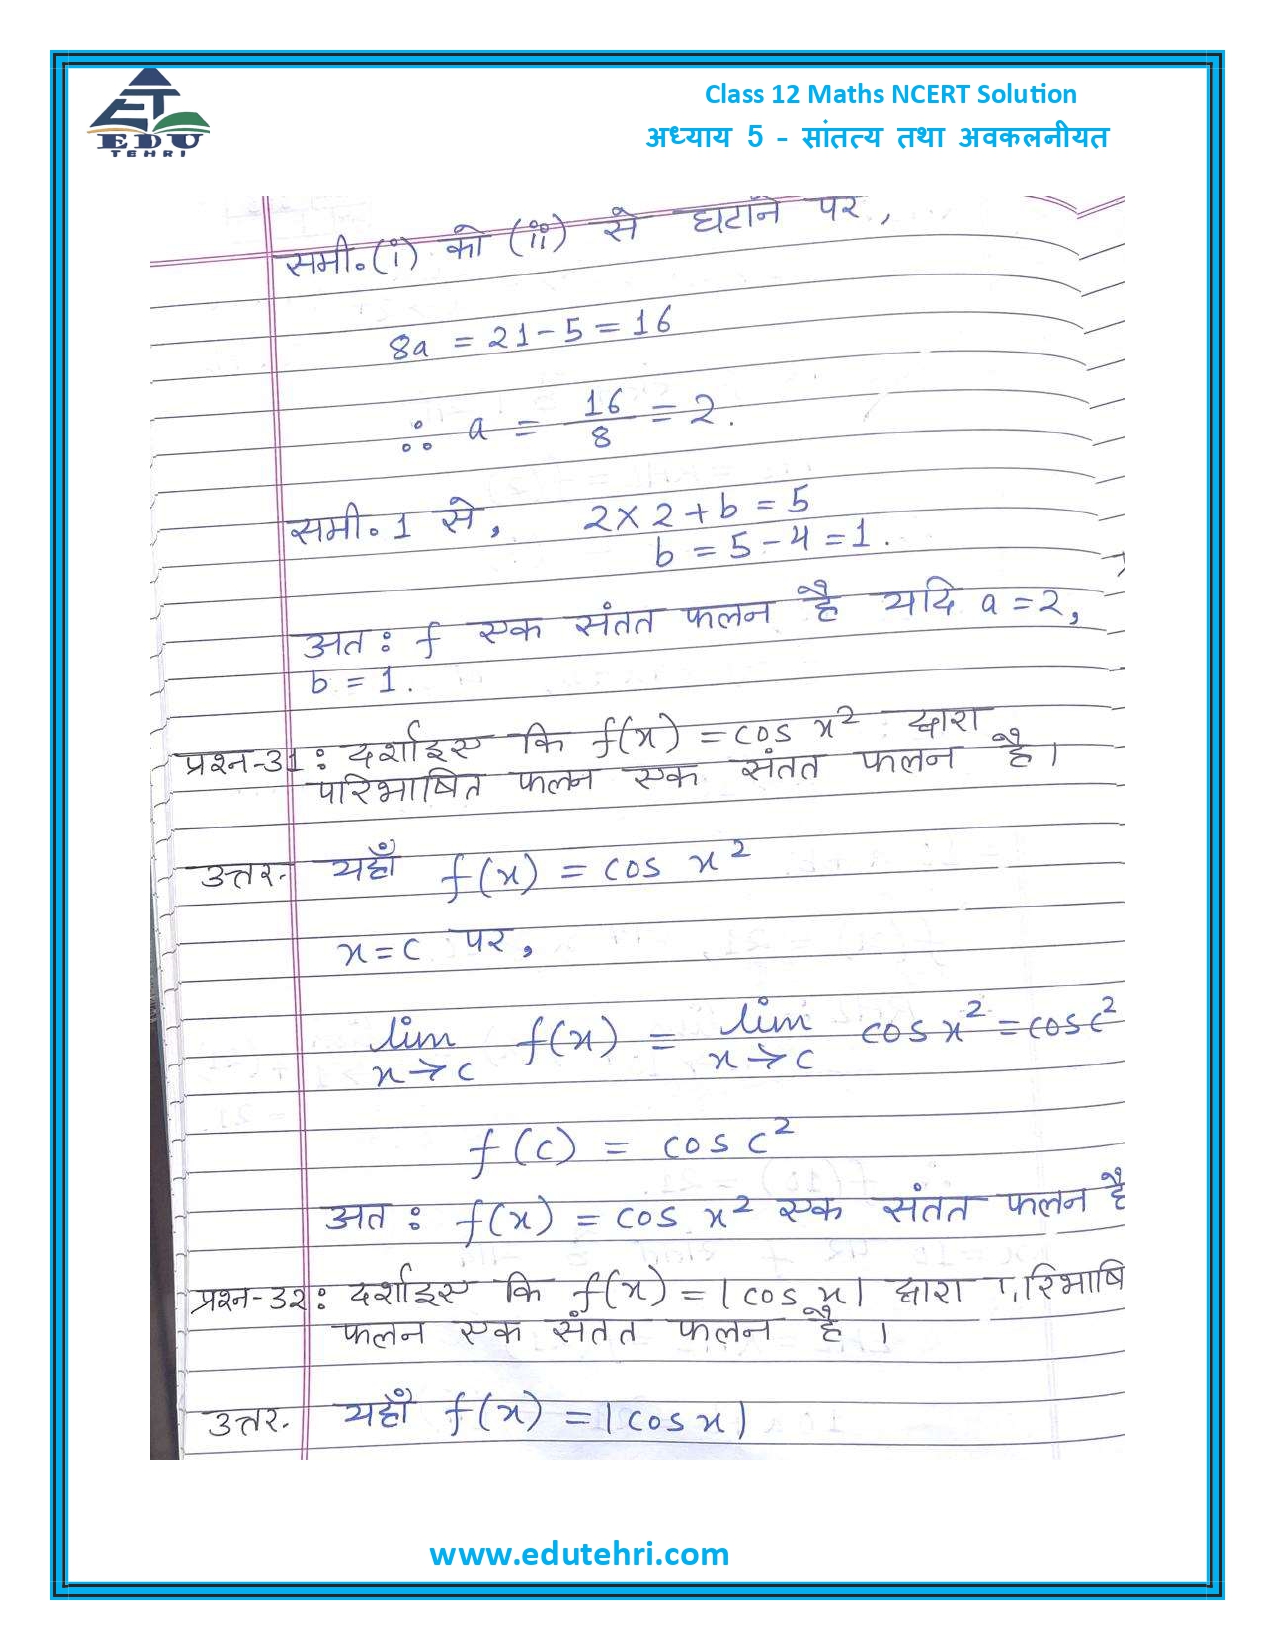 EDU
TEHRI
Class 12 Maths NCERT Solution
अध्याय 5 - सांतत्य तथा अवकलनीयत
समी.(i) को (ii) से घटाने पर,
8a = 21 - 5 = 16
∴ a = 16/8 = 2.
समी. 1 से, 2 × 2 + b = 5
b = 5 - 4 = 1.
अतः f एक संतत फलन है यदि a = 2,
b = 1.
प्रश्न-31: दर्शाइए कि f(x) = cos x² द्वारा
परिभाषित फलन एक संतत फलन है।
उत्तर. यहाँ f(x) = cos x²
x = c पर,
lim x→c f(x) = lim x→c cos x² = cos c²
f(c) = cos c²
अतः f(x) = cos x² एक संतत फलन है
प्रश्न-32: दर्शाइए कि f(x) = |cos x| द्वारा परिभाषि
फलन एक संतत फलन है।
उत्तर. यहाँ f(x) = |cos x|
www.edutehri.com